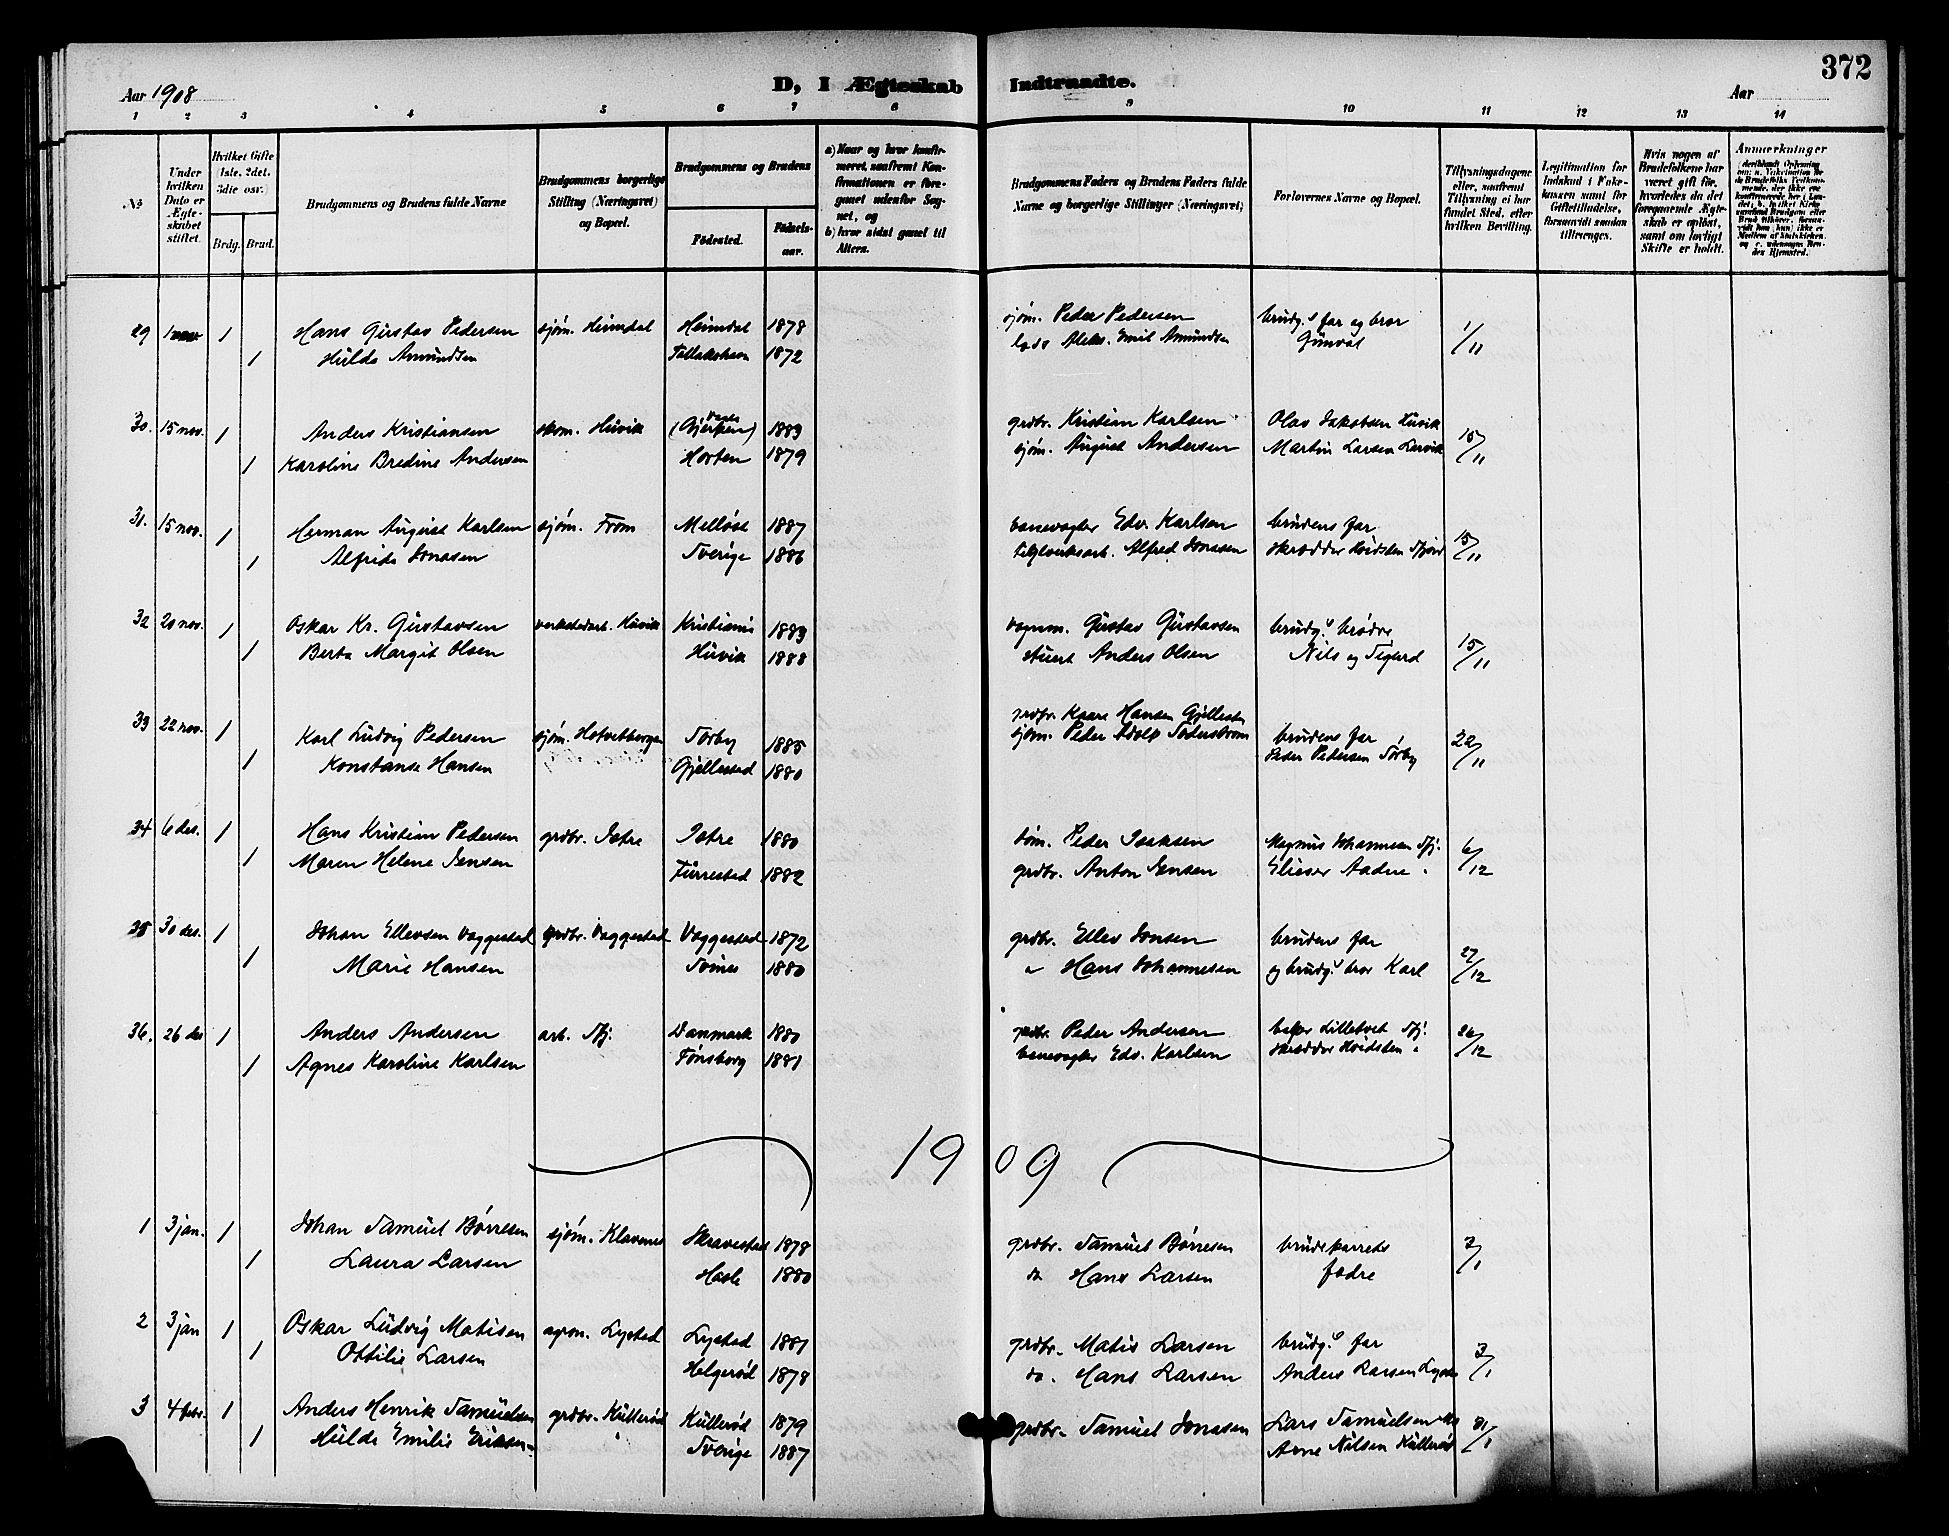 372
Aar 1908
D, I Ægteskab Indtraadte.
Aar
1 2 3 4 5 6 7 8 9 10 11 12 13 14
No
Under hvilken Dato er Ægteskabet stiftet.
Hvilket Gifte (1ste, 2det, 3die osv.)
Brdg. Brud.
Brudgommens og Brudens fulde Navne
Brudgommens borgerlige Stilling (Næringsvei) og Bopæl.
Brudgommens og Brudens
Fødested.
Fødselsaar.
a) Naar og hvor konfirmeret, saafremt Konfirmationen er foregaaet udenfor Sognet, og
b) hvor sidst gaaet til Alters.
Brudgommens Faders og Brudens Faders fulde Navne og borgerlige Stillinger (Næringsvei)
Forlovernes Navne og Bopæl.
Tillysningsdagene eller, saafremt Tillysning ei har fundet Sted, efter hvilken Bevilling.
Legitimation for Indskud i Enkekassen samt for Giftetilladelse, forsaavidt saadan tiltrænges.
Hvis nogen af Brudefolkene har været gift før, hvorledes da det foregaaende Ægteskab er opløst, samt om lovligt Skifte er holdt.
Anmærkninger
29 1 nov. 1 Hans Gustav Pedersen sjøm. Heimdal Heimdal 1878 sjøm. Peder Pedersen brudg.s far og bror 1/11
1 Hulda Amundsen 1872 Aleks. Emil Amundsen Gunval
30. 15 nov. 1 Anders Kristiansen skom. Huvik (Gjerpen) 1883 grdbr. Kristian Karlsen Olav Jakobsen Huvik 15/11
1 Karoline Bredine Andersen Horten 1879 sjøm. August Andersen Martin Larsen Larvik
31. 15 nov. 1 Herman August Karlsen sjøm. From Melløse 1887 banevogter Edv. Karlsen brudens far 15/11
1 Alfrida Jonasen Sverige 1886 teglverksarb. Alfred Jonasen skrædder Hvidsten Sfjord
32 20 nov. 1 Oskar Kr. Gustavsen verkstedarb. Huvik Kristiania 1883 vognm. Gustav Gustavsen brudg.s brødre 15/11
1 Berta Margit Olsen Huvik 1888 stuert Anders Olsen Nils og Sigurd
33 22 nov. 1 Karl Ludvig Pedersen sjøm. Hotvetbergen Sørby 1885 grdbr. Kaare Hansen Gjellesta brudens far 22/11
1 Konstanse Hansen Gjellestad 1880 sjøm. Peder Adolf Söderstrøm Peder Pedersen Sørby
34 6 des. 1 Hans Kristian Pedersen grdbr. Istre Istre 1880 tøm. Peder Isaksen Magnus Johannesen Sfj. 6/12
1 Maren Helene Jensen Furrestad 1882 grdbr. Anton Jensen Elieser Aadne "
35 30 des. 1 Johan Ellevsen Vaggestad grdbr. Vaggestad Vaggestad 1872 grdbr. Ellev Jonsen brudens far 27/12
1 Marie Hansen 1880 " Hans Johannesen og brudg.s bror Karl
36. 26 des 1 Anders Andersen arb. Sfj. Danmark 1880 grdbr. Peder Andersen baker Lilletvet Sfj. 26/12
1 Agnes Karoline Karlsen Tønsberg 1881 banevogter Edv. Karlsen skrædder Hvidsten "
1909
1 3 jan. 1 Johan Samuel Børresen sjøm. Klavenes Skravestad 1878 grdbr. Samuel Børresen brudeparrets 3/1
1 Laura Larsen Hasle 1880 do Hans Larsen fædre
2 3 jan 1 Oskar Ludvig Matisen agron. Lystad Lystad 1881 grdbr. Matis Larsen brudg.s far 3/1
1 Ottilie Larsen Helgerød 1878 do. Hans Larsen Anders Larsen Lysta
3 4 febr. 1 Anders Henrik Samuelsen grdbr. Kullerød Kullerød 1879 grdbr. Samuel Jonasen Lars Samuelsen 31/1
1 Hulda Emilie Eriksen Sverige 1887 Arne Nilsen Kullerød